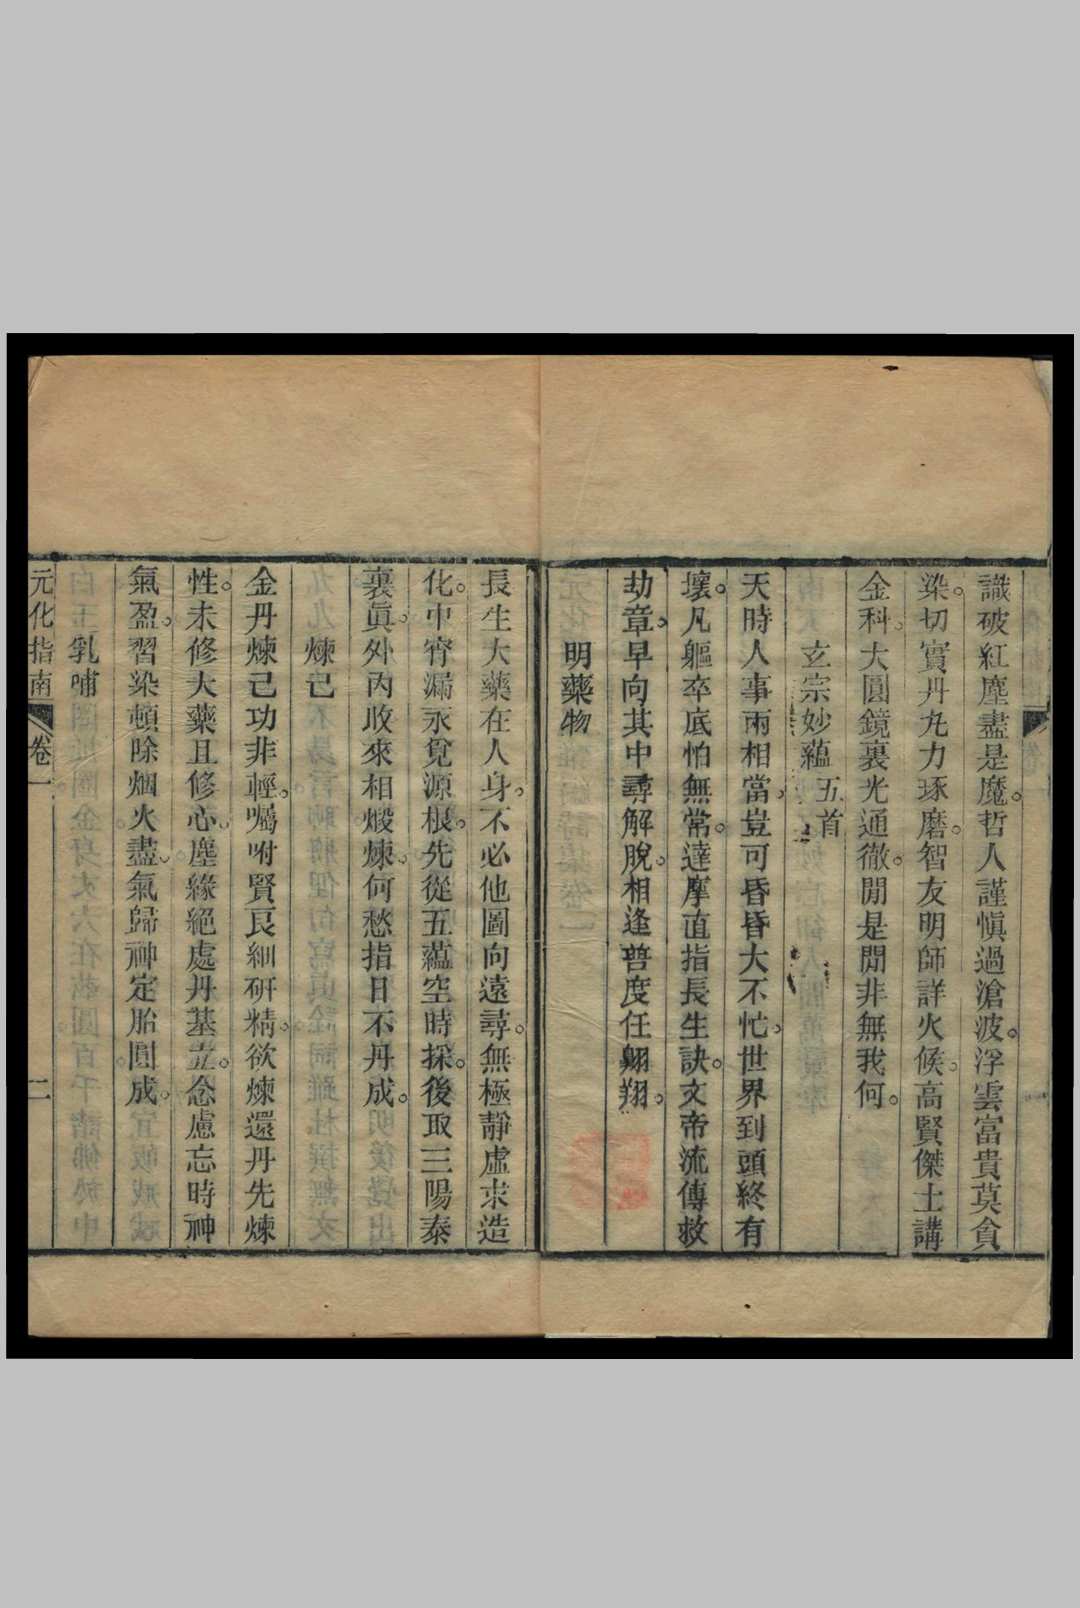 識破紅塵盡是魔。哲人謹愼過滄波。浮雲富貴莫貪
染。切實丹九力琢磨。智友明師詳火候。高賢傑士講
金科。大圓鏡裏光通徹。閒是閒非無我何。
玄宗妙蘊五首
天時人事兩相當。豈可昏昏大不忙。世界到頭終有
壞。凡軀卒底怕無常。達摩直指長生訣。文帝流傳救
劫章。早向其中尋解脫。相逢普度任翺翔。
明藥物
長生大藥在人身。不必他圖向遠尋。無極靜虛求造
化。中宵漏永覓源根。先從五蘊空時採。後取三陽泰
裏眞。外丙收來相煅煉。何愁指日不丹成。
煉己
金丹煉己功非輕。囑咐賢良細研精。欲煉還丹先煉
性。未修大藥且修心。塵緣絕處丹基立。念慮忘時神
氣盈。習染頓除烟火盡。氣歸神定胎圓成。
乳哺
元化指南 卷一 二